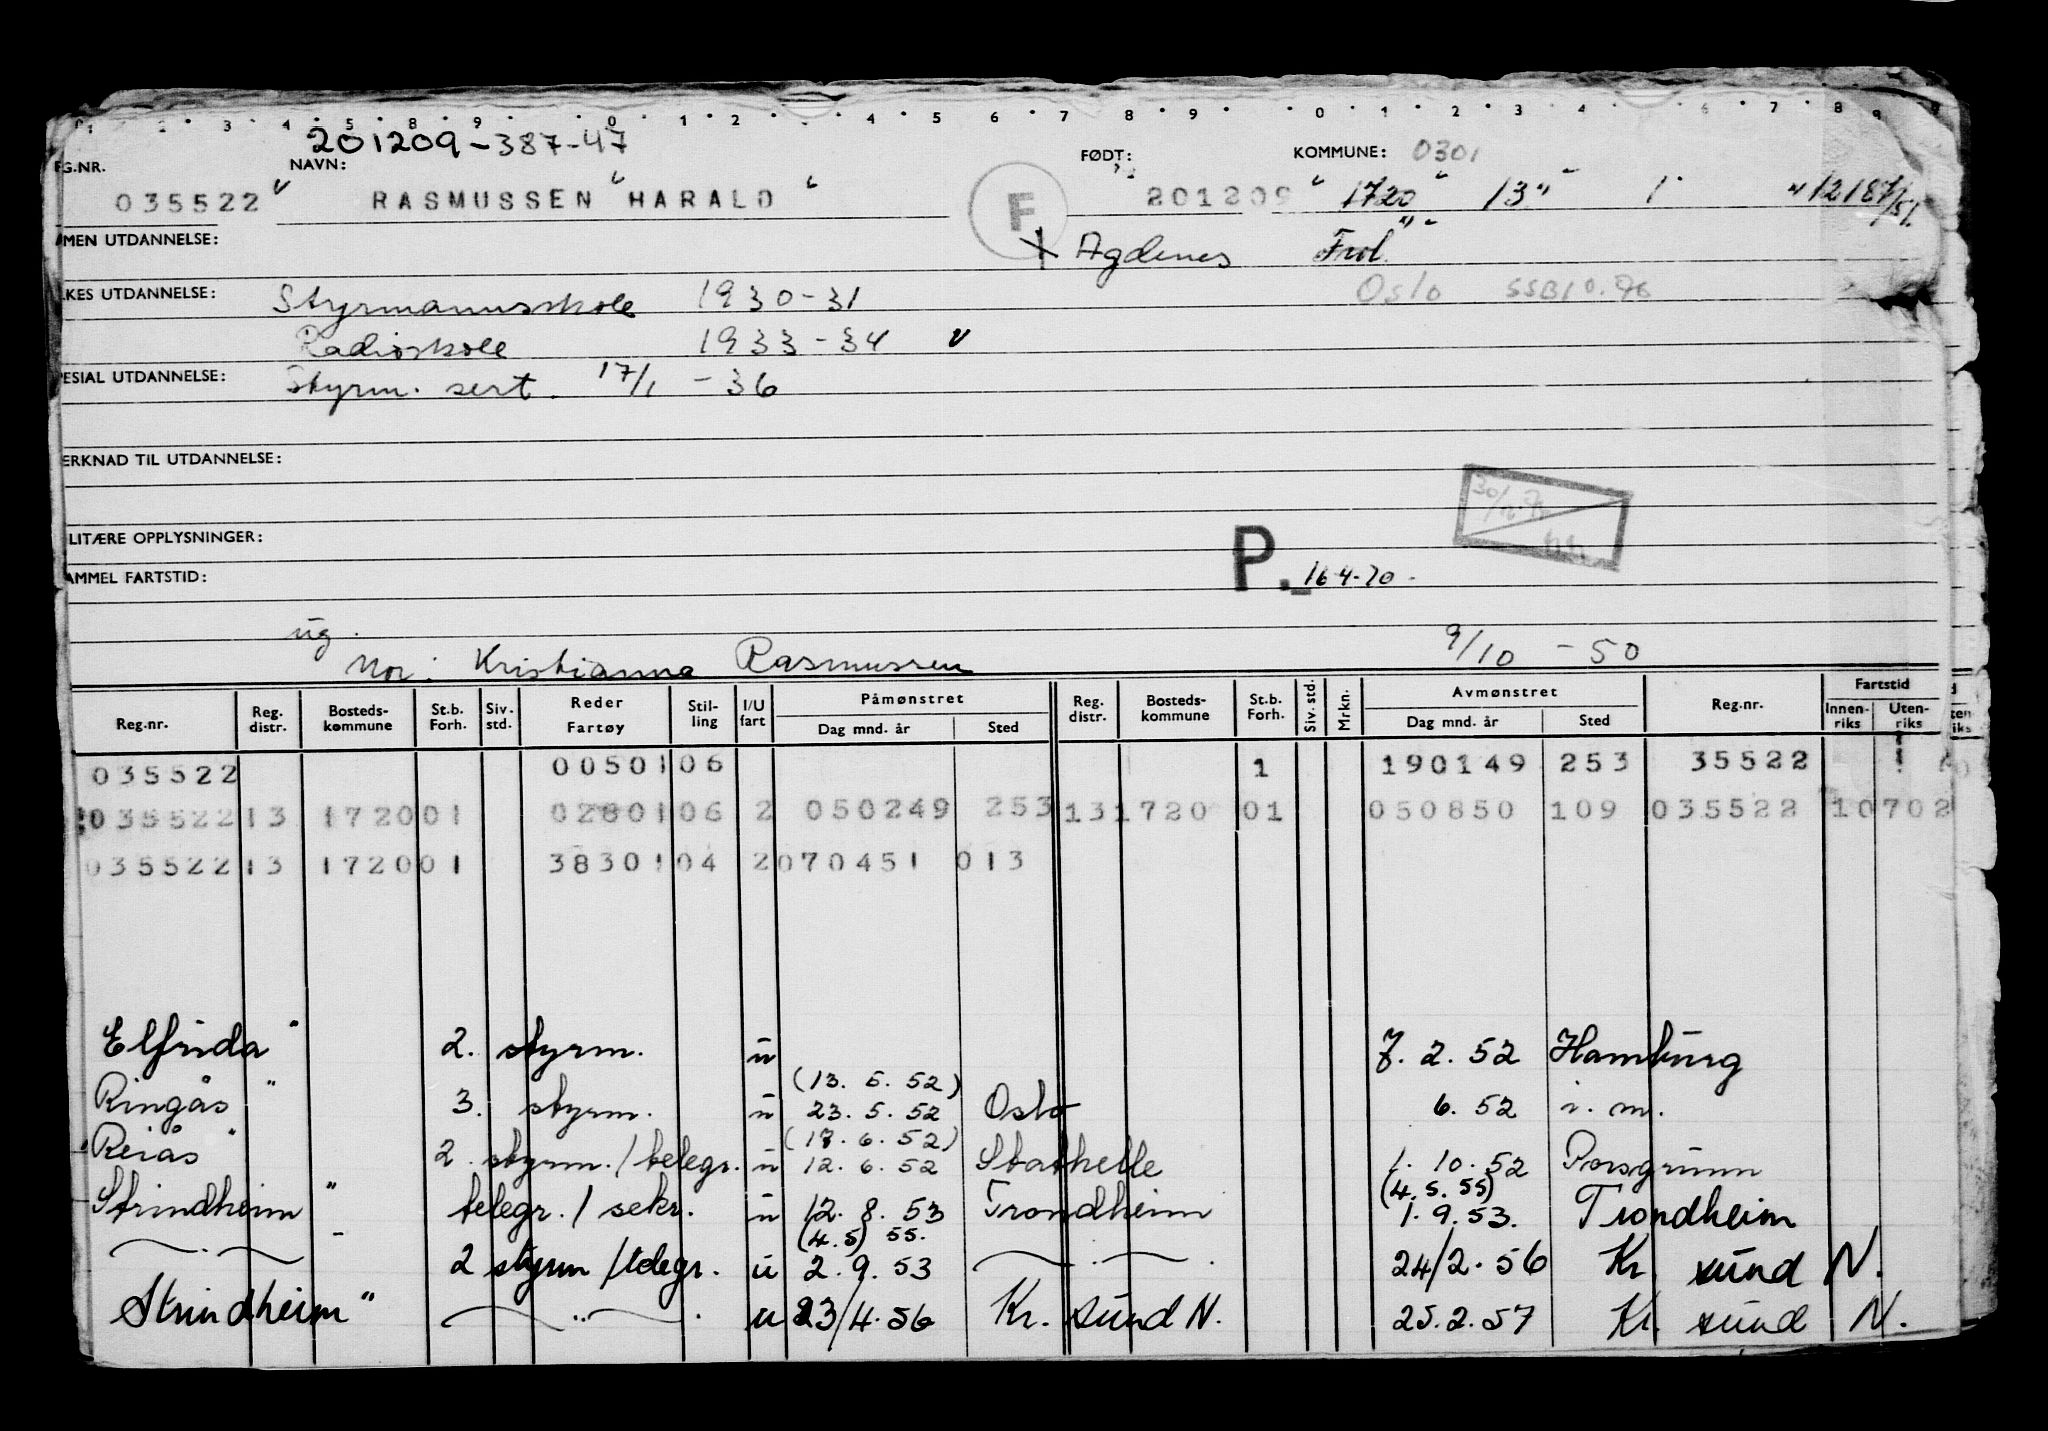 201209-387-47
G.NR. NAVN: FØDT: KOMMUNE: 0301
035522 RASMUSSEN HARALD F 201209 1720 13 1 12187/51
MEN UTDANNELSE: Agdenes Frol
LKES UTDANNELSE: Styrmannsskole 1930-31 Oslo
Radioskole 1933-34
ESIAL UTDANNELSE: Styrm. sert. 17/1 - 36
ERKNAD TIL UTDANNELSE:
LITÆRE OPPLYSNINGER:
AMMEL FARTSTID: P. 16-4-70.
ug.
Mor: Kristianna Rasmussen 9/10 - 50
Reg.nr. Reg. distr. Bosteds-kommune St.b. Forh. Siv. std. Reder Fartøy Stil-ling I/U fart Påmønstret Dag mnd. år Sted Reg. distr. Bosteds-kommune St.b. Forh. Siv. std. Mrkn. Avmønstret Dag mnd. år Sted Reg.nr. Fartstid Innen-riks Uten-riks
035522 00501 06 1 190149 253 35522
035522 13 1720 01 02801 06 2 050249 253 13 1720 01 050850 109 035522 10702
035522 13 1720 01 38301 04 2 070451 013
Elfrida " 2. styrm. u 7. 2. 52 Hamburg
(13. 5. 52)
Ringås " 3. styrm. u 23. 5. 52 Oslo 6. 52 i. m.
(18. 6. 52)
Reiås " 2. styrm. / telegr. u 12. 6. 52 Stathelle 1. 10. 52 Porsgrunn
(4. 5. 55)
Strindheim " telegr. / sekr. u 12. 8. 53 Trondheim 1. 9. 53. Trondheim
(4. 5) 55.
— " — 2 styrm / telegr. u 2. 9. 53 — . — . 24/2. 56 Kr. sund N.
Strindheim " — " — . u 23/4. 56 Kr. sund N. 25. 2. 57 Kr. sund N.